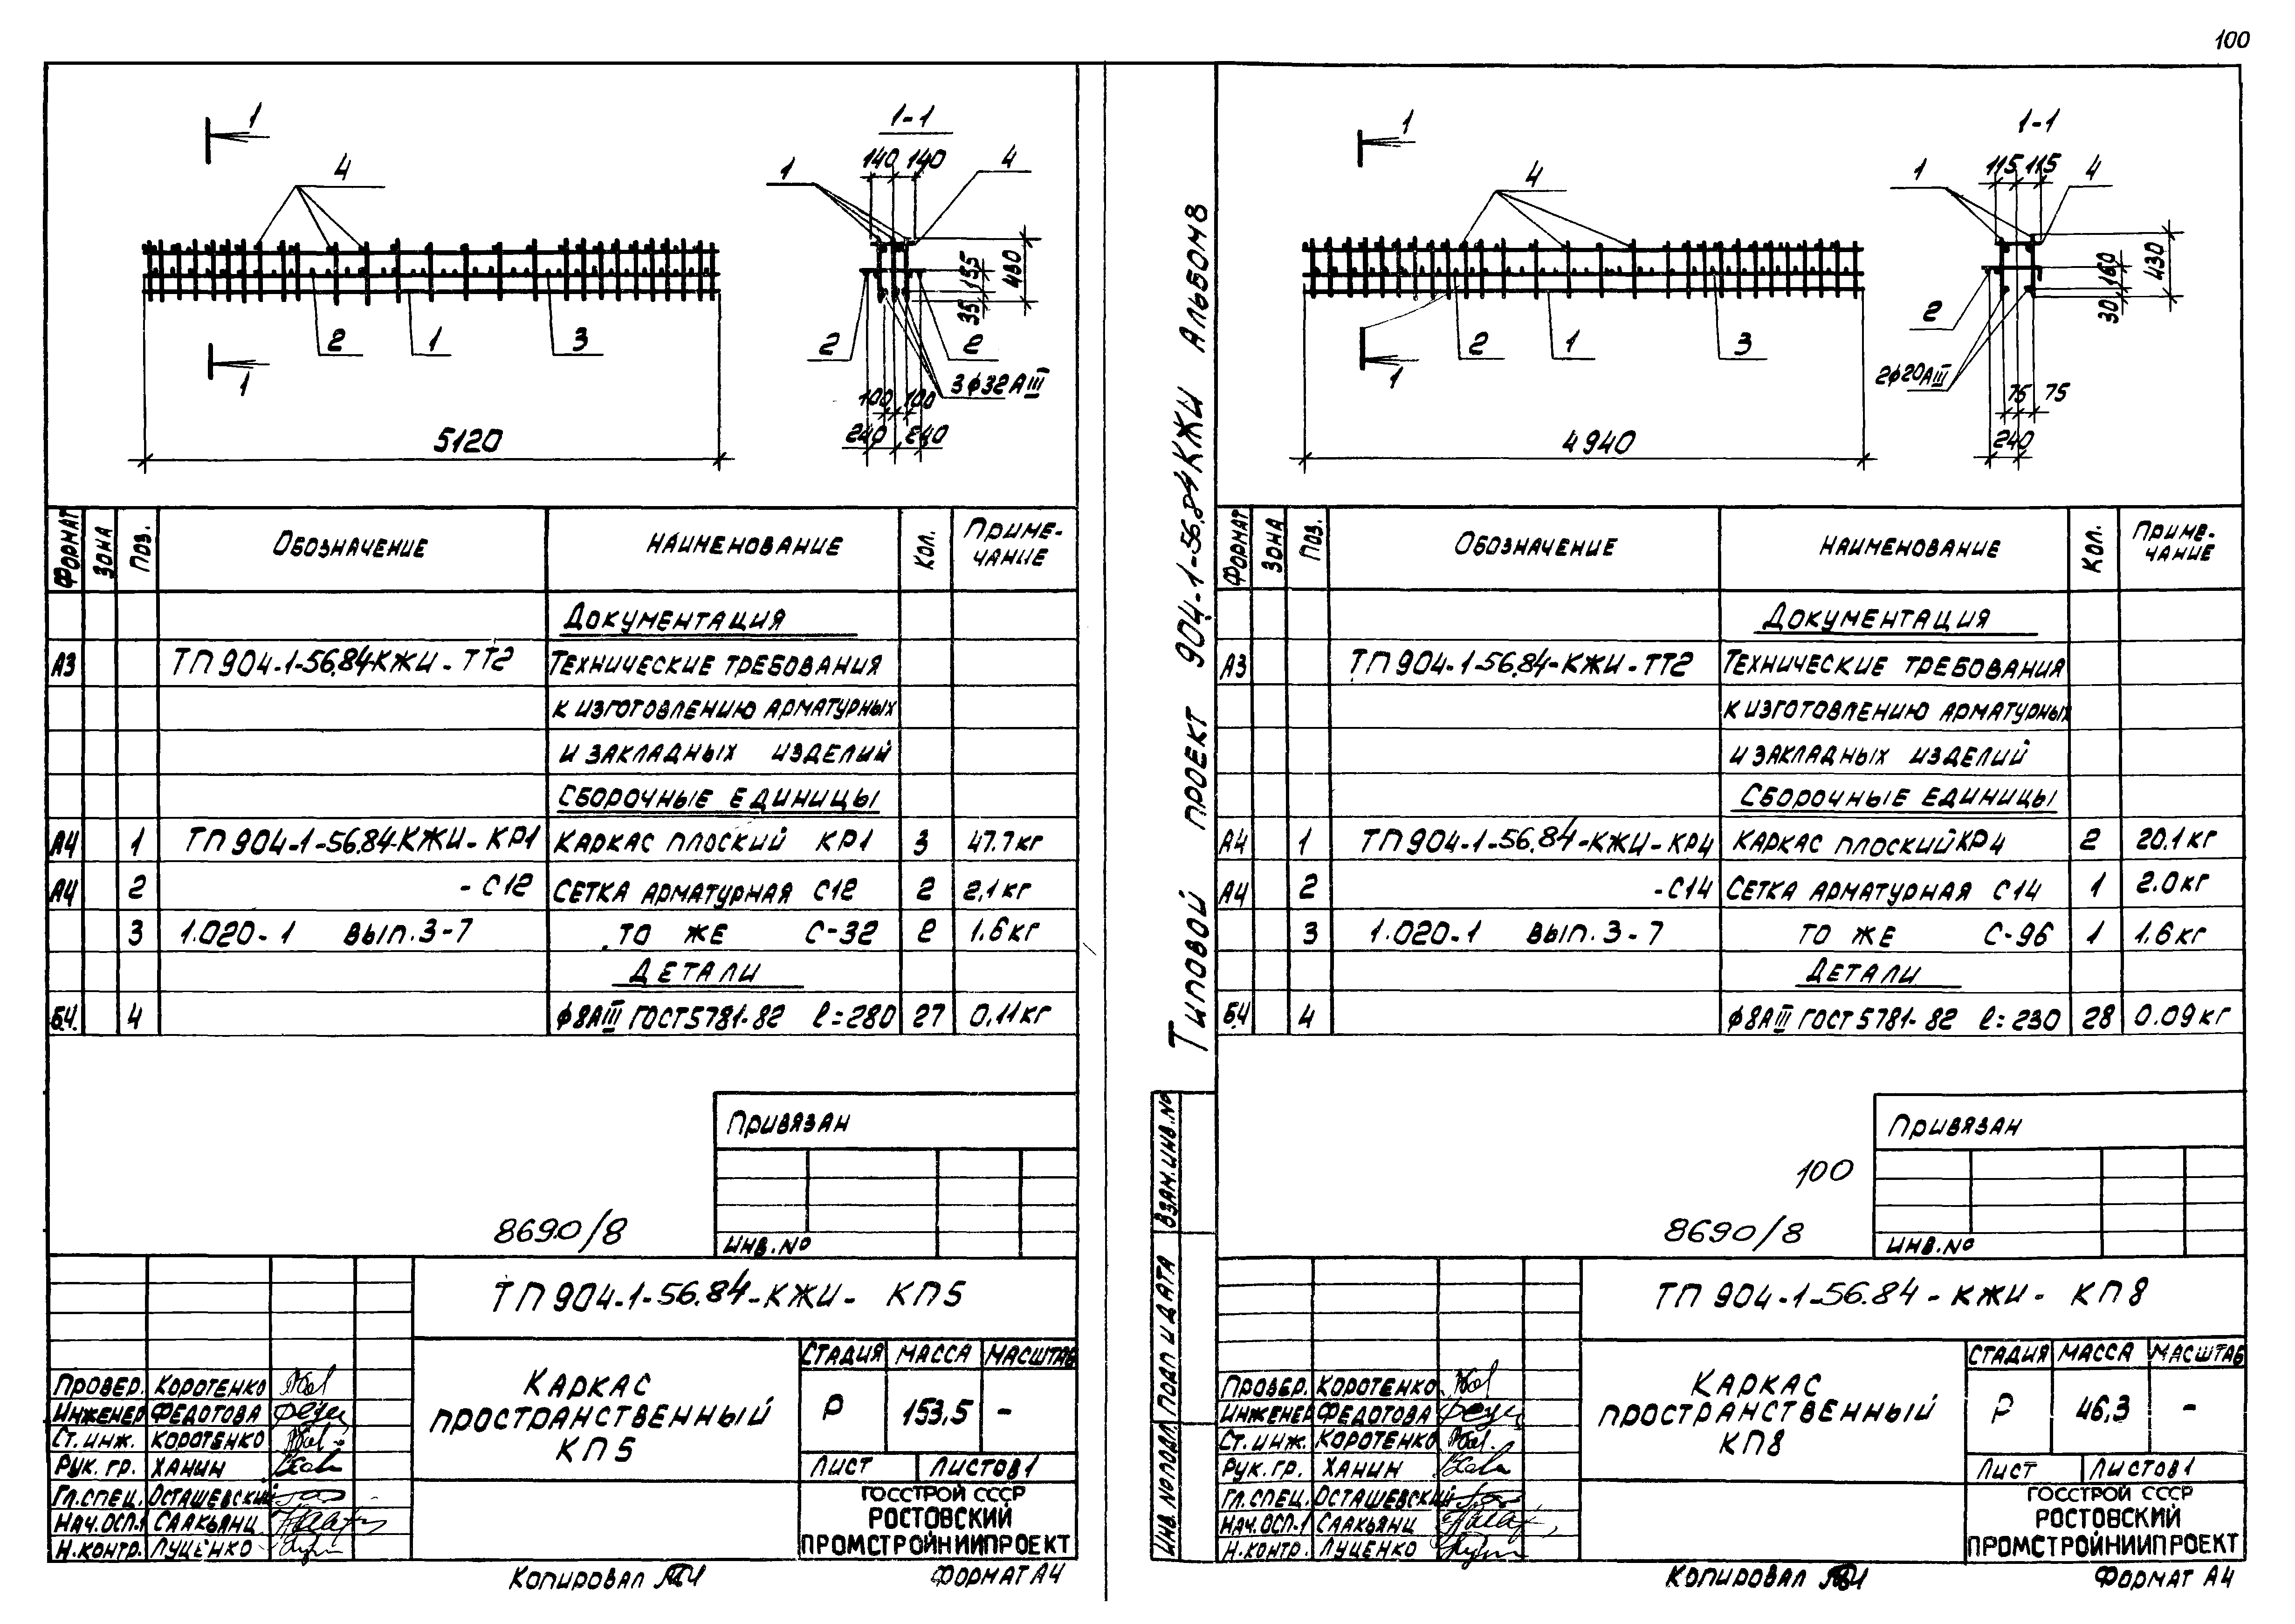 100
1
4
1-1
140 140
1
4
155
480
35
2
1
3
2
2
1
3ф32АIII
100 100
240 240
5120
Формат
Зона
Поз.
Обозначение
Наименование
Кол.
Приме-
чание
Документация
А3 ТП904-1-56.84-КЖИ-ТТ2 Технические требования
к изготовлению арматурных
и закладных изделий
Сборочные единицы
А4 1 ТП904-1-56.84-КЖИ-КР1 Каркас плоский КР1 3 47.7кг
А4 2 -С12 Сетка арматурная С12 2 2,1кг
3 1.020-1 вып.3-7 То же С-32 2 1.6кг
Детали
Б.4. 4 ф8АIII ГОСТ5781-82 ℓ=280 27 0.11кг
Привязан
8690/8
Инв.№
ТП904-1-56.84-КЖИ- КП5
Каркас
пространственный
КП5
Стадия Масса Масштаб
Р 153,5 -
Лист Листов 1
Провер. Коротенко
Инженер Федотова
Ст. инж. Коротенко
Рук. гр. Ханин
Гл.спец. Осташевский
Нач.ОСП-1 Саакьянц
Н.контр. Луценко
ГОССТРОЙ СССР
РОСТОВСКИЙ
ПРОМСТРОЙНИИПРОЕКТ
Копировал
Формат А4
Типовой проект 904-1-56.84 КЖИ Альбом 8
Взам.инв.№
Подп и дата
Инв. № подл.
1
4
1-1
115 115
1
4
160
430
30
2
1
3
2
1
2ф20АIII
75 75
240
4940
Формат
Зона
Поз.
Обозначение
Наименование
Кол.
Приме-
чание
Документация
А3 ТП904-1-56.84-КЖИ-ТТ2 Технические требования
к изготовлению арматурных
и закладных изделий
Сборочные единицы
А4 1 ТП904-1-56.84-КЖИ-КР4 Каркас плоский КР4 2 20.1кг
А4 2 -С14 Сетка арматурная С14 1 2.0кг
3 1.020-1 вып.3-7 То же С-96 1 1.6кг
Детали
Б.4 4 ф8АIII ГОСТ5781-82 ℓ=230 28 0.09кг
Привязан
100
8690/8
Инв.№
ТП904-1-56.84-КЖИ- КП8
Каркас
пространственный
КП8
Стадия Масса Масштаб
Р 46,3 -
Лист Листов 1
Провер. Коротенко
Инженер Федотова
Ст. инж. Коротенко
Рук. гр. Ханин
Гл. спец. Осташевский
Нач. ОСП-1 Саакьянц
Н.контр. Луценко
ГОССТРОЙ СССР
РОСТОВСКИЙ
ПРОМСТРОЙНИИПРОЕКТ
Копировал
Формат А4